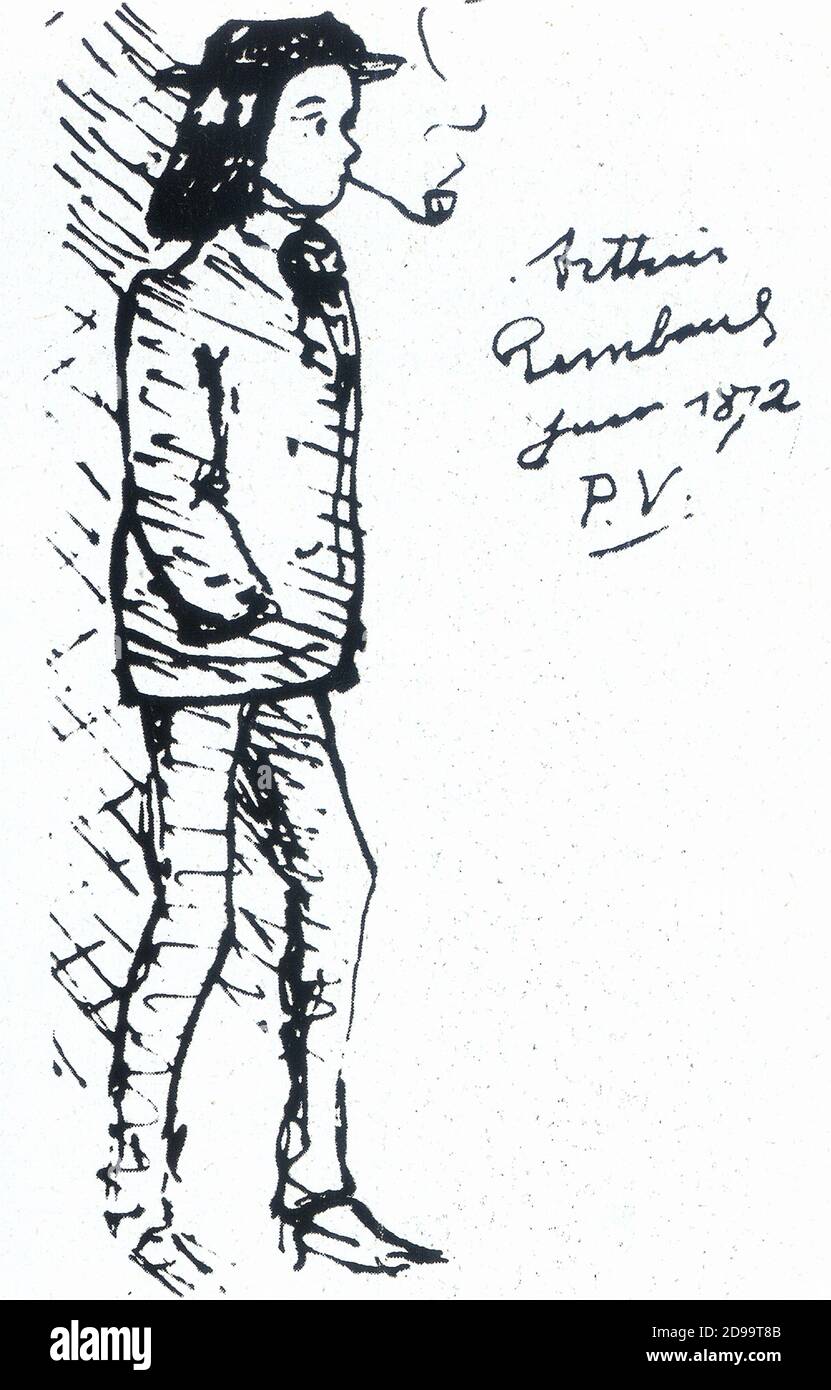 Arthur
Rimbaud
juin 1872
P.V.
alamy
Image ID: 2D99T8B
www.alamy.com